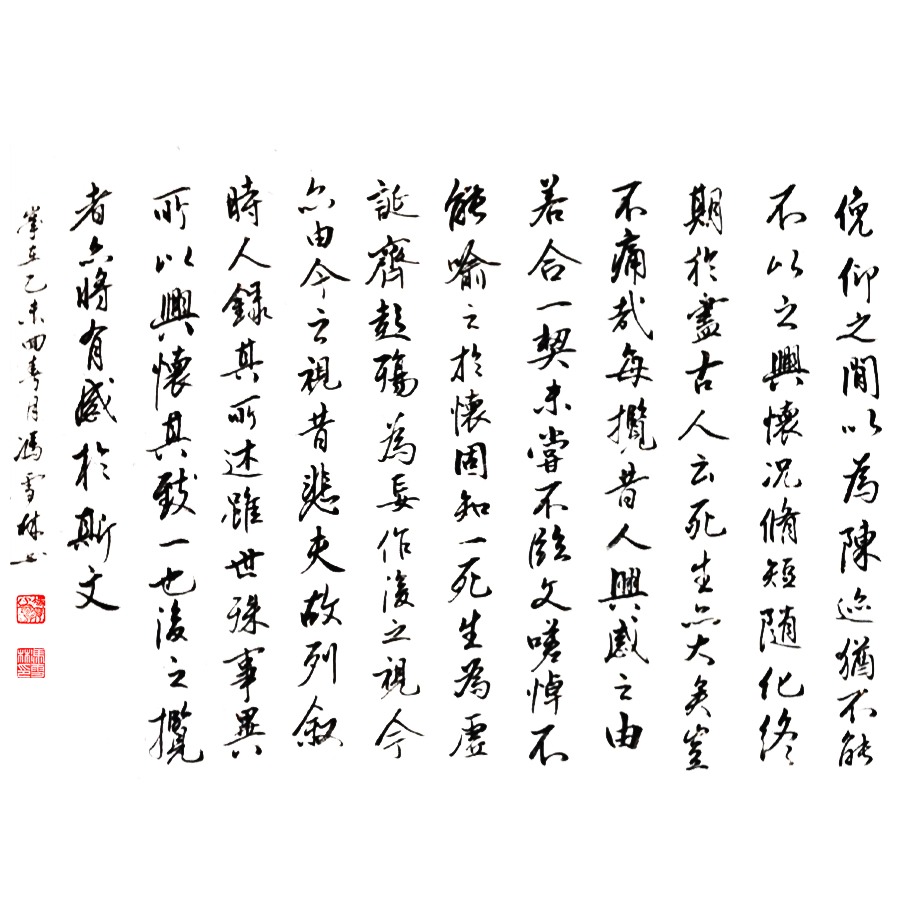 俛仰之間以為陳迹猶不能
不以之興懷況脩短隨化終
期於盡古人云死生亦大矣豈
不痛哉每攬昔人興感之由
若合一契未嘗不臨文嗟悼不
能喻之於懷固知一死生為虛
誕齊彭殤為妄作後之視今
亦由今之視昔悲夫故列敘
時人錄其所述雖世殊事異
所以興懷其致一也後之攬
者亦將有感於斯文
歲在乙未四春月馮雪林书